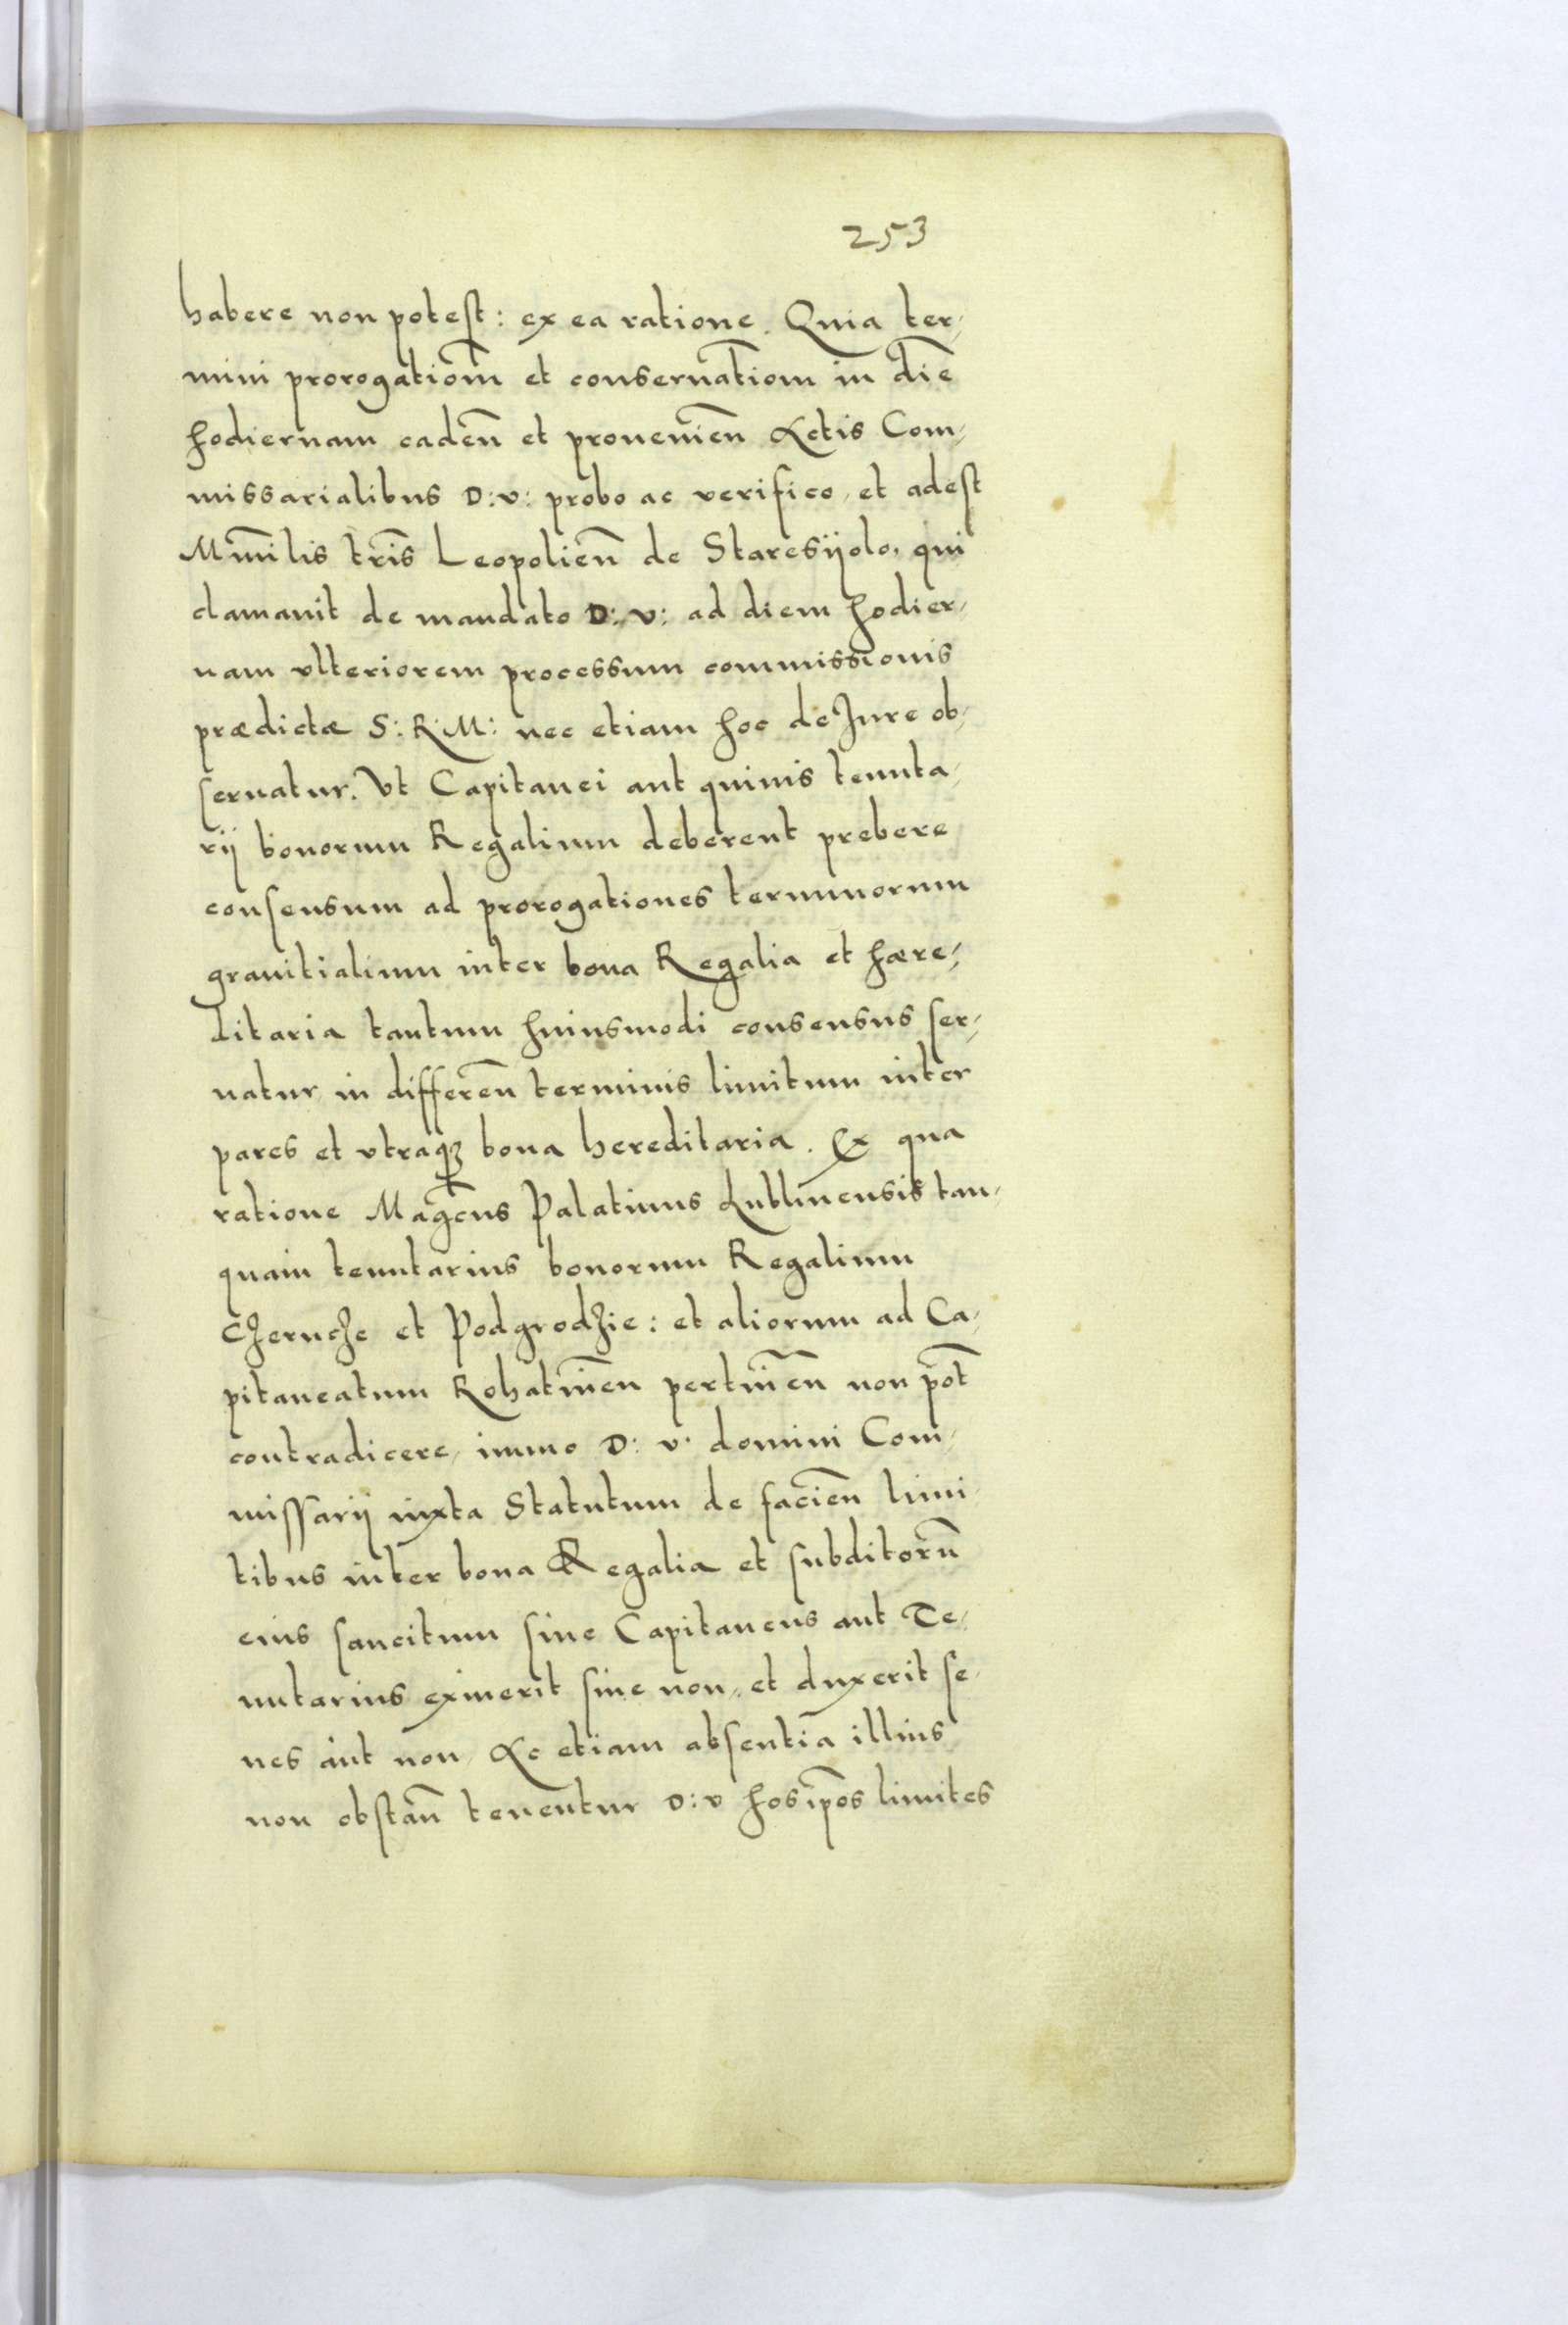 253
habere non potest: ex ea ratione. Quia ter,
mini prorogatiom̄ et conseruatiom̄ in diē
hodiernam cadeñ et proueniēn Actis Com,
missarialibus D: V: probo ac verifico, et adest
Mm̄lis tr̄is Leopolieñ de Staresijolo, qui
clamauit de mandato D: V: ad diem hodier,
nam vlteriorem processum commissionis
prædictæ S: R: M: nec etiam hoc de Jure ob,
seruatur. Vt Capitanei aut quiuis tenuta,
rij bonorum Regalium deberent prebere
consensum ad prorogationes terminorum
granitialium inter bona Regalia et hære,
ditaria tantum huiusmodi consensus ser,
uatur in differēn terminis limitum inter
pares et vtraqȝ bona hereditaria. Ex qua
ratione Mag̅cus Palatinus Lublinensis tan,
quam tenutarius bonorum Regalium
Czerncze et Podgrodzie: et aliorum ad Ca,
pitaneatum Rohatinēn pertinēn non pōt
contradicere, immo D: V: domini Com,
missarij iuxta Statutum de faciēn limi,
tibus inter bona Regalia et subditorū
eius sancitum siue Capitaneus aut Te,
nutarius exiuerit siue non, et duxerit se,
nes aut non, Ac etiam absentiā illius
non obstañ tenentur D: V hos ip̄os limites